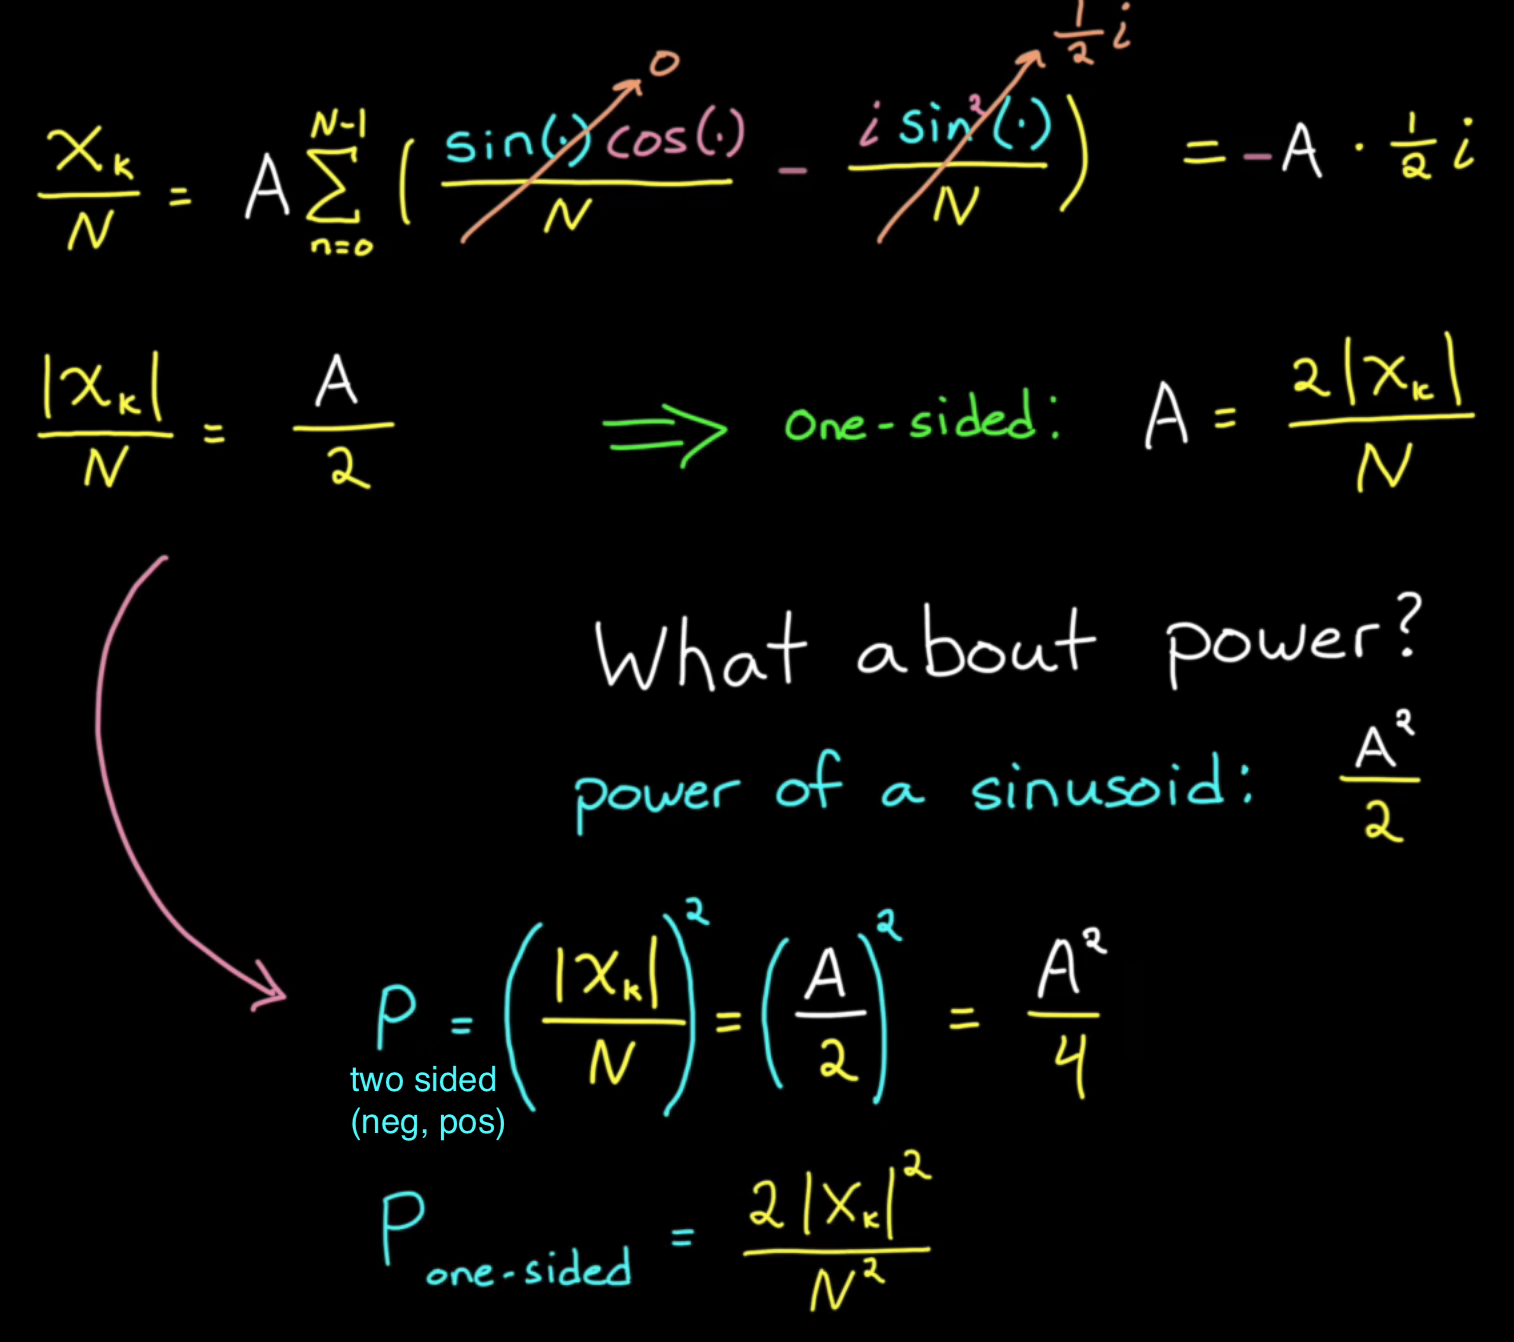 X_k/N = A ∑_{n=0}^{N-1} ( sin(·)cos(·)/N → 0 - i sin²(·)/N → 1/2 i ) = -A · 1/2 i
|X_k|/N = A/2 ⇒ one-sided: A = 2|X_k|/N
What about power?
power of a sinusoid: A²/2
P = (|X_k|/N)² = (A/2)² = A²/4
two sided
(neg, pos)
P_one-sided = 2|X_k|²/N²